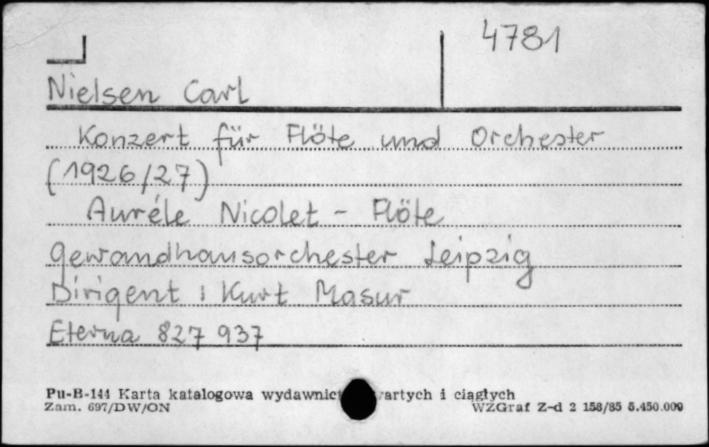 4781
Nielsen Carl
Konzert für Flöte und Orchester
(1926/27)
Auréle Nicolet - Flöte
Gewandhausorchester Leipzig
Dirigent : Kurt Masur
Eterna 827 937
Pu-B-144 Karta katalogowa wydawnict artych i ciągłych
Zam. 697/DW/ON WZGraf Z-d 2 158/85 5.450.000